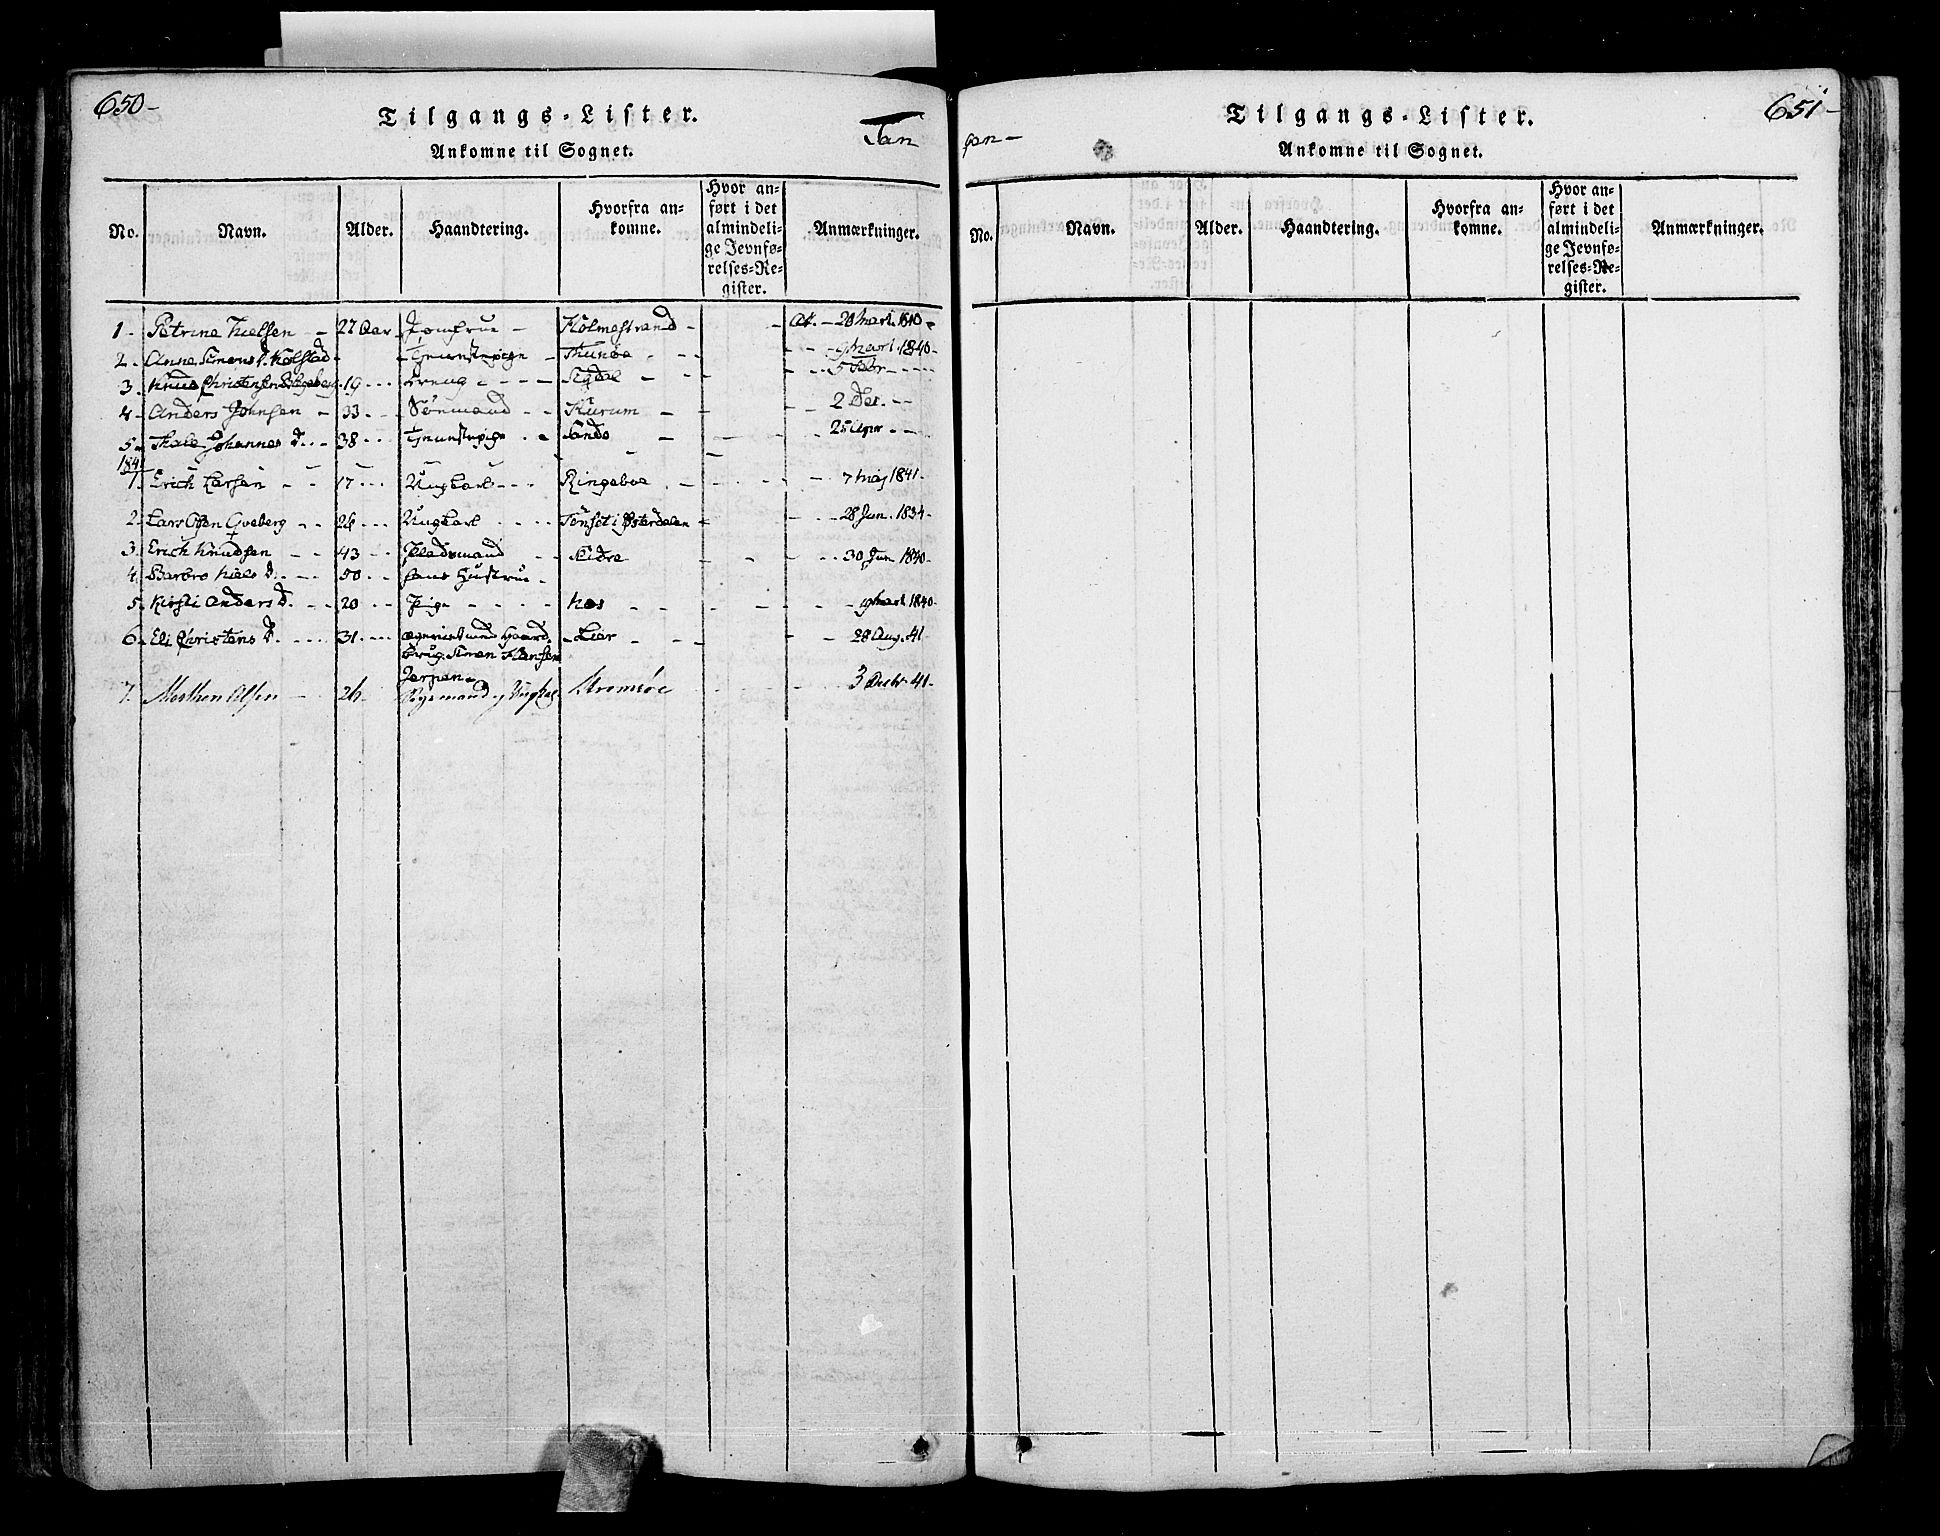 650-
Tilgangs-Lister.
Ankomne til Sognet.
No. Navn. Alder. Haandtering. Hvorfra ankomne. Hvor anført i det almindelige Jevnførelses-Register. Anmærkninger.
1 - Petrine Nielsen - 27 Aar Jomfrue - Holmestrand - At. - 28 Mart. 1840 -
2 - Anna Simens D. Kolstad - Tjenestepige - - 9 Mart. 1840 -
3 Knud Christensen - 19 - - - Dreng - - - Sigdal - - 5 Febr - - -
4 - Anders Johnsen - 33 - - - - Hurum - - 2 Dec. - -
5 - Johannes D. - - 38 - - Tjenestepige - - Sande - 25 Apr - -
1841
1. Erich Larsen - - 17 - - - Ungkarl - - - Ringeboe - - - 7 Maj 1841 -
2. Lars Olsen Gveberg - - 24 - - - Ungkarl - - - Tønset i Østerdalen - - 28 Jun. 1834 -
3. Erich Knudsen - - 43 - - Pladsmand - - - - 30 Jun 1840 -
4. Barbro Niels D. - - 50 - - hans Hustrue -
5. Kirsti Anders D. - - 20 - - Pige - - - - Næs - - - - 9 Mart. 1840 -
6. Eli Christens D. - - - 31 - - - - Lier - - - - 28 Aug. 41 -
Simen Hansen
Jerpen -
7. Morthen Olsen - 26 - og Ungkarl Strømsøe - - 3 Decbr 41 -
Tan
gen -
651-
Tilgangs-Lister.
Ankomne til Sognet.
No. Navn. Alder. Haandtering. Hvorfra ankomne. Hvor anført i det almindelige Jevnførelses-Register. Anmærkninger.